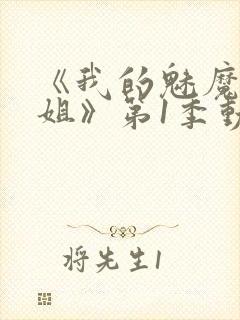 《我的魅魔
姐》第1季動
将先生1